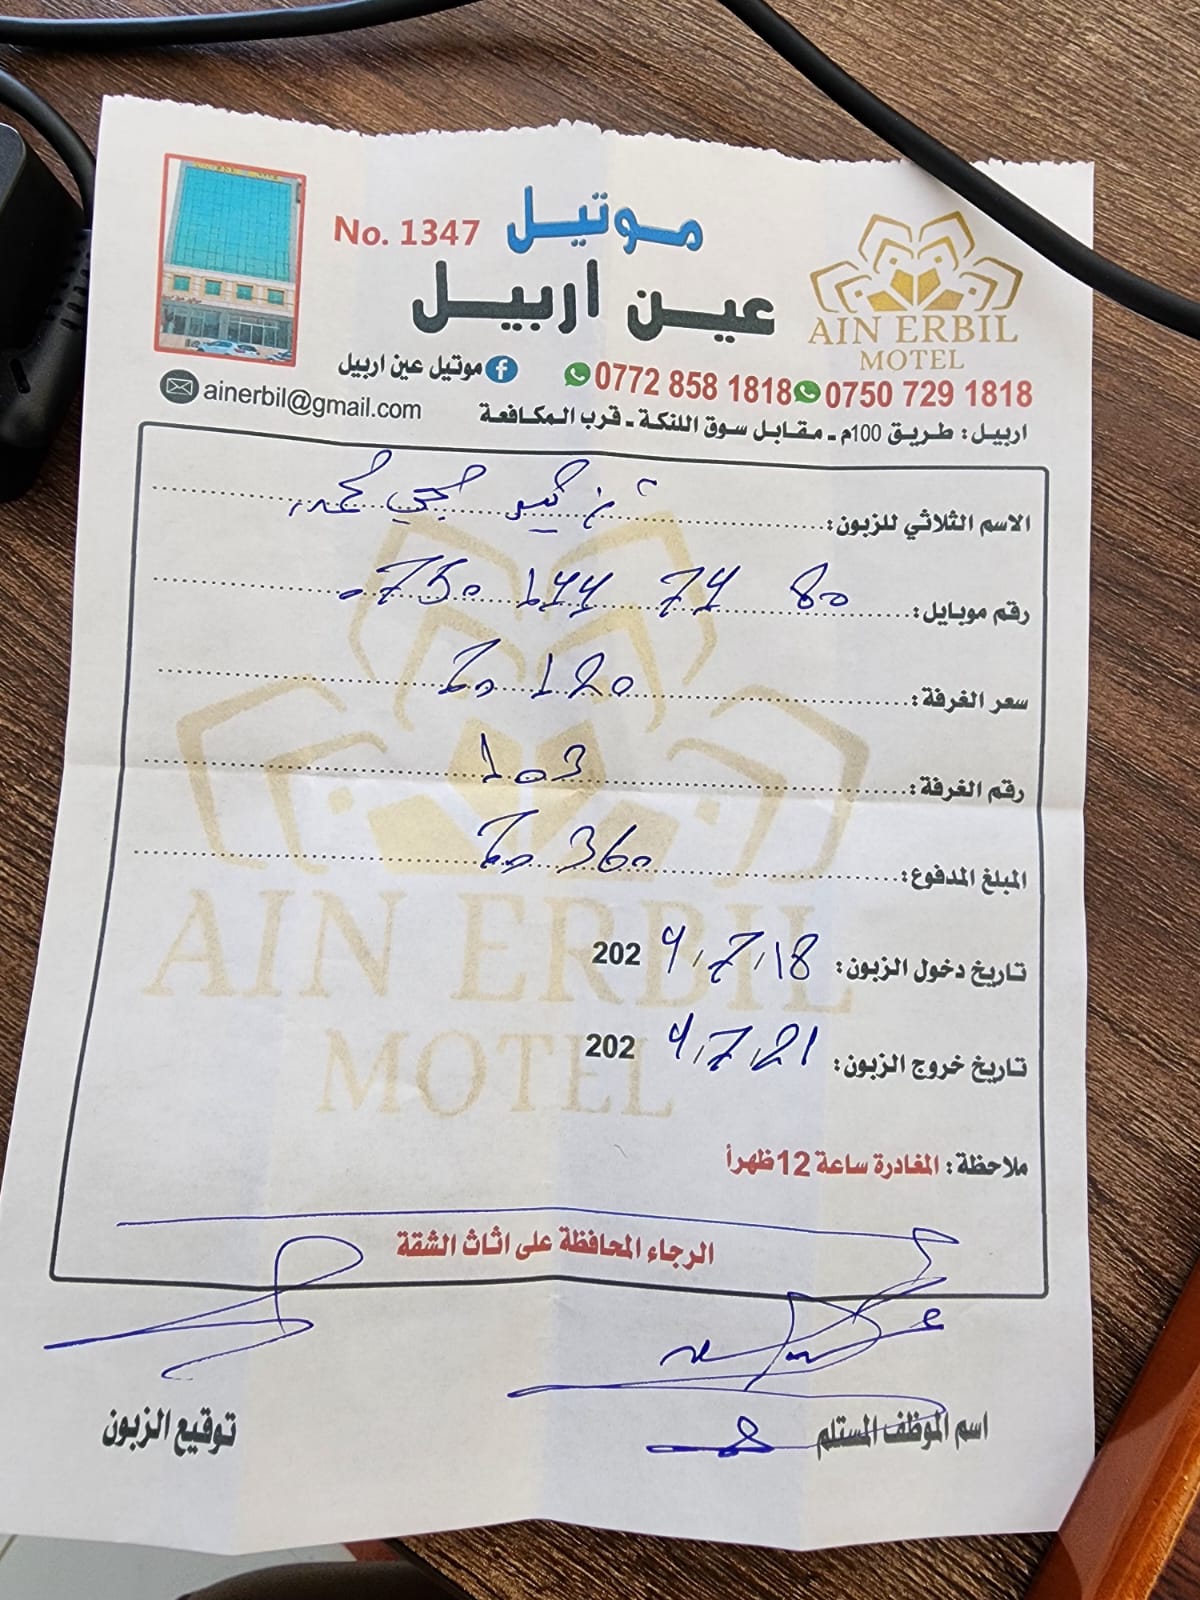 No. 1347
موتيل
عين اربيل
AIN ERBIL
MOTEL
موتيل عين اربيل
0772 858 1818 0750 729 1818
ainerbil@gmail.com
اربيل: طريق 100م - مقابل سوق اللنكة - قرب المكافعة
الاسم الثلاثي للزبون: محمد
رقم موبايل: 0750 144 74 80
سعر الغرفة: 120
رقم الغرفة: 103
المبلغ المدفوع: 360
AIN ERBIL
MOTEL
تاريخ دخول الزبون: 18 / 7 / 2024
تاريخ خروج الزبون: 21 / 7 / 2024
ملاحظة: المغادرة ساعة 12 ظهراً
الرجاء المحافظة على اثاث الشقة
اسم الموظف المستلم
توقيع الزبون